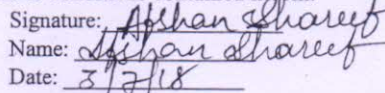 Signature: Afshan Shareef
Name: Afshan Shareef
Date: 3/7/18